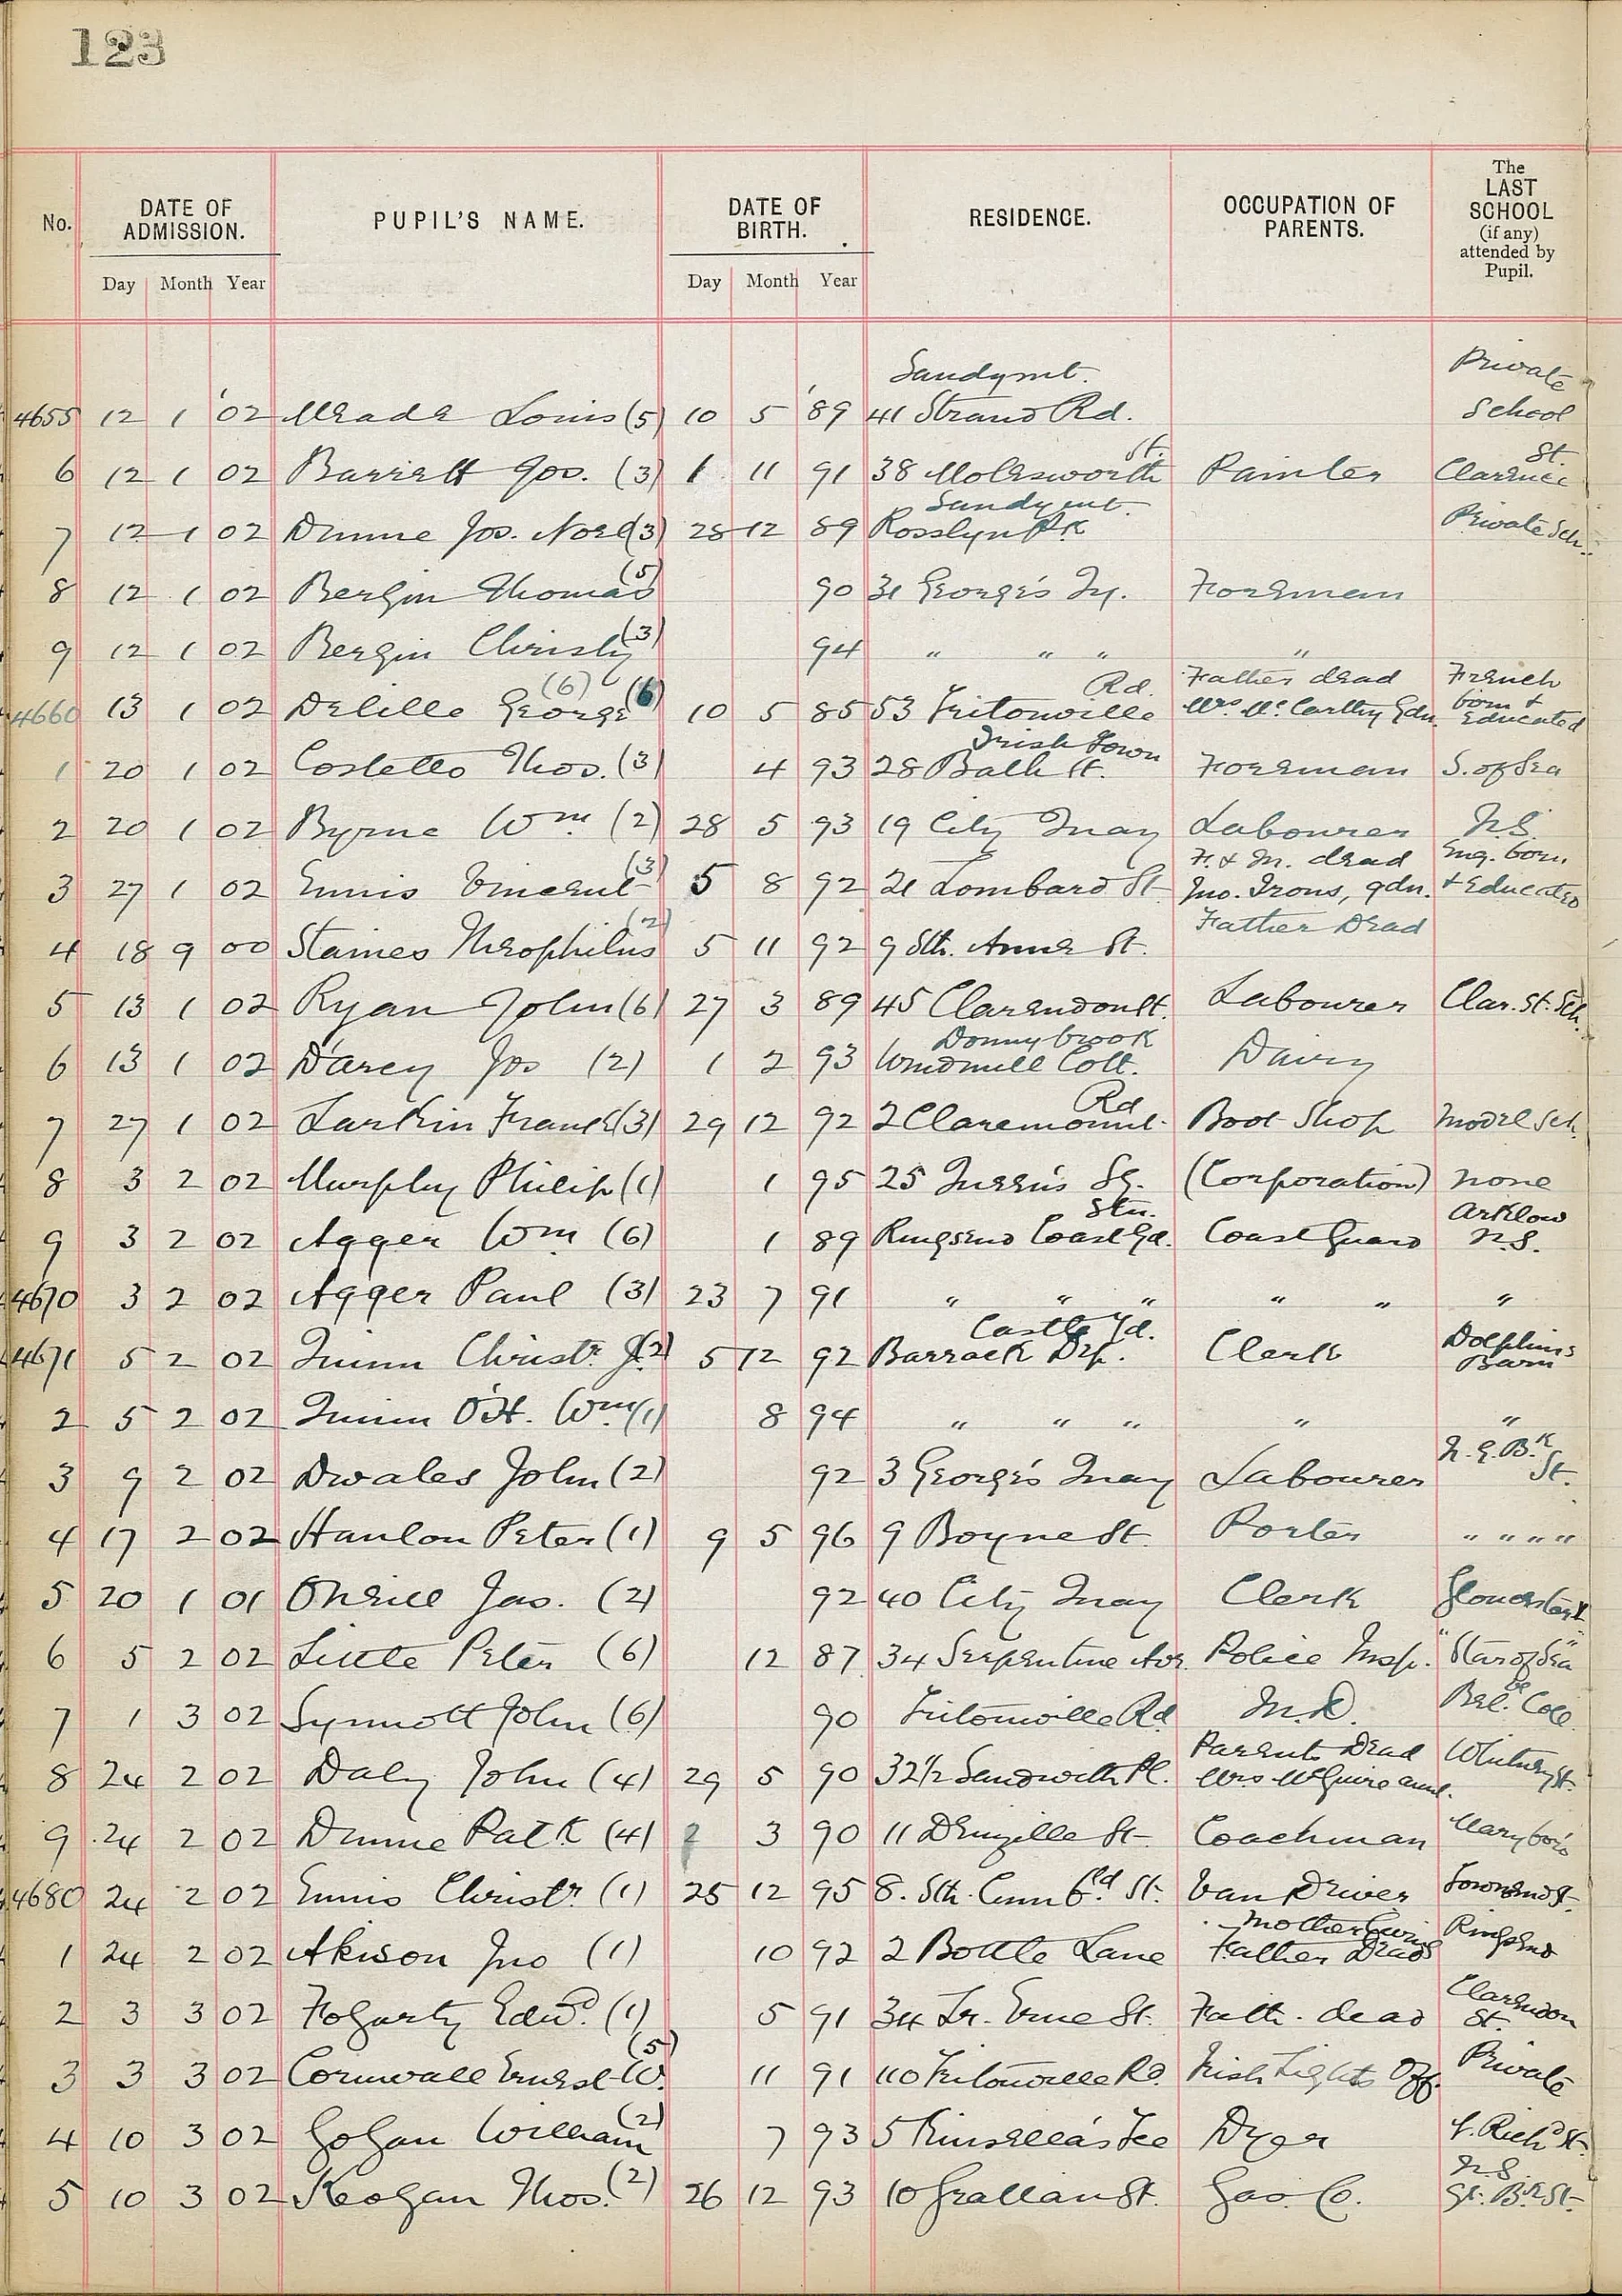 123
No. DATE OF ADMISSION. PUPIL'S NAME. DATE OF BIRTH. RESIDENCE. OCCUPATION OF PARENTS. The LAST SCHOOL (if any) attended by Pupil.
Day Month Year Day Month Year
4655 12 1 '02 Meade Louis (5) 10 5 '89 41 Strand Rd. Sandymt. Private School
6 12 1 02 Barrett Jos. (3) 1 11 91 38 Molesworth St. Painter St. Clarence
7 12 1 02 Dunne Jos. (3) 28 12 89 Rosslyn Pk Sandymt. Private Sch.
8 12 1 02 Bergin Thomas (5) 90 31 George's Qy. Foreman
9 12 1 02 Bergin Christy (3) 94 " " " "
4660 13 1 02 Delille George (6) (6) 10 5 85 53 Tritonville Rd. Father dead Mrs. McCarthy Gdn. French born & Educated
1 20 1 02 Costello Thos. (3) 4 93 28 Bath St. Irishtown Foreman S. of Sea
2 20 1 02 Byrne Wm. (2) 28 5 93 19 City Quay Labourer N.S.
3 27 1 02 Ennis Vincent (3) 5 8 92 21 Lombard St F. & M. dead Jno. Irons, gdn. Eng. born & Educated
4 18 9 00 Staines Theophilus (2) 5 11 92 9 Sth. Anne St. Father Dead
5 13 1 02 Ryan John (6) 27 3 89 45 Clarendon St. Labourer Clar. St. Sch.
6 13 1 02 D'arcy Jos (2) 1 2 93 Windmill Cott. Donnybrook Dairy
7 27 1 02 Larkin Frank (3) 29 12 92 2 Claremount Rd Boot Shop Model Sch.
8 3 2 02 Murphy Philip (1) 1 95 25 Queen's Sq. (Corporation) none
9 3 2 02 Agger Wm (6) 1 89 Ringsend Coast Gd. Stn. Coast Guard Arklow N.S.
4670 3 2 02 Agger Paul (3) 23 7 91 " " " " " "
4671 5 2 02 Quinn Christr. J. (2) 5 12 92 Barrack Dep. Castle Yd. Clerk Dolphins Barn
2 5 2 02 Quinn O'H. Wm. (1) 8 94 " " " " "
3 9 2 02 Dwales John (2) 92 3 George's Quay Labourer N. G. Bk St.
4 17 2 02 Hanlon Peter (1) 9 5 96 9 Boyne St. Porter " " " "
5 20 1 01 O'Neill Jas. (2) 92 40 City Quay Clerk Gloucester
6 5 2 02 Little Peter (6) 12 87 34 Serpentine Ave. Police Insp. "Star of Sea"
7 1 3 02 Synnott John (6) 90 Tritonville Rd M.D. Bel. Coll.
8 24 2 02 Daly John (4) 29 5 90 32½ Sandwith Pl. Parents Dead Mrs McGuire aunt.
9 24 2 02 Dunne Patk (4) 2 3 90 11 Denzille St Coachman Marybor'o
4680 24 2 02 Ennis Christr. (1) 25 12 95 8. Sth. Cumb'd. St. Van Driver Townsend St.
1 24 2 02 Akison Jno (1) 10 92 2 Bottle Lane Mother living Father Dead Ringsend
2 3 3 02 Fogarty Edwd. (1) 5 91 34 Lr. Erne St. Fath. dead Clarendon St.
3 3 3 02 Cornwall Ernest W. (5) 11 91 110 Tritonville Rd. Irish Lights Off. Private
4 10 3 02 Gogan William (2) 7 93 5 Kinsella's Tce Dyer Richd St.
5 10 3 02 Keogan Thos. (2) 26 12 93 10 Grattan St. Gas. Co. N.S. Gt. Bk St.